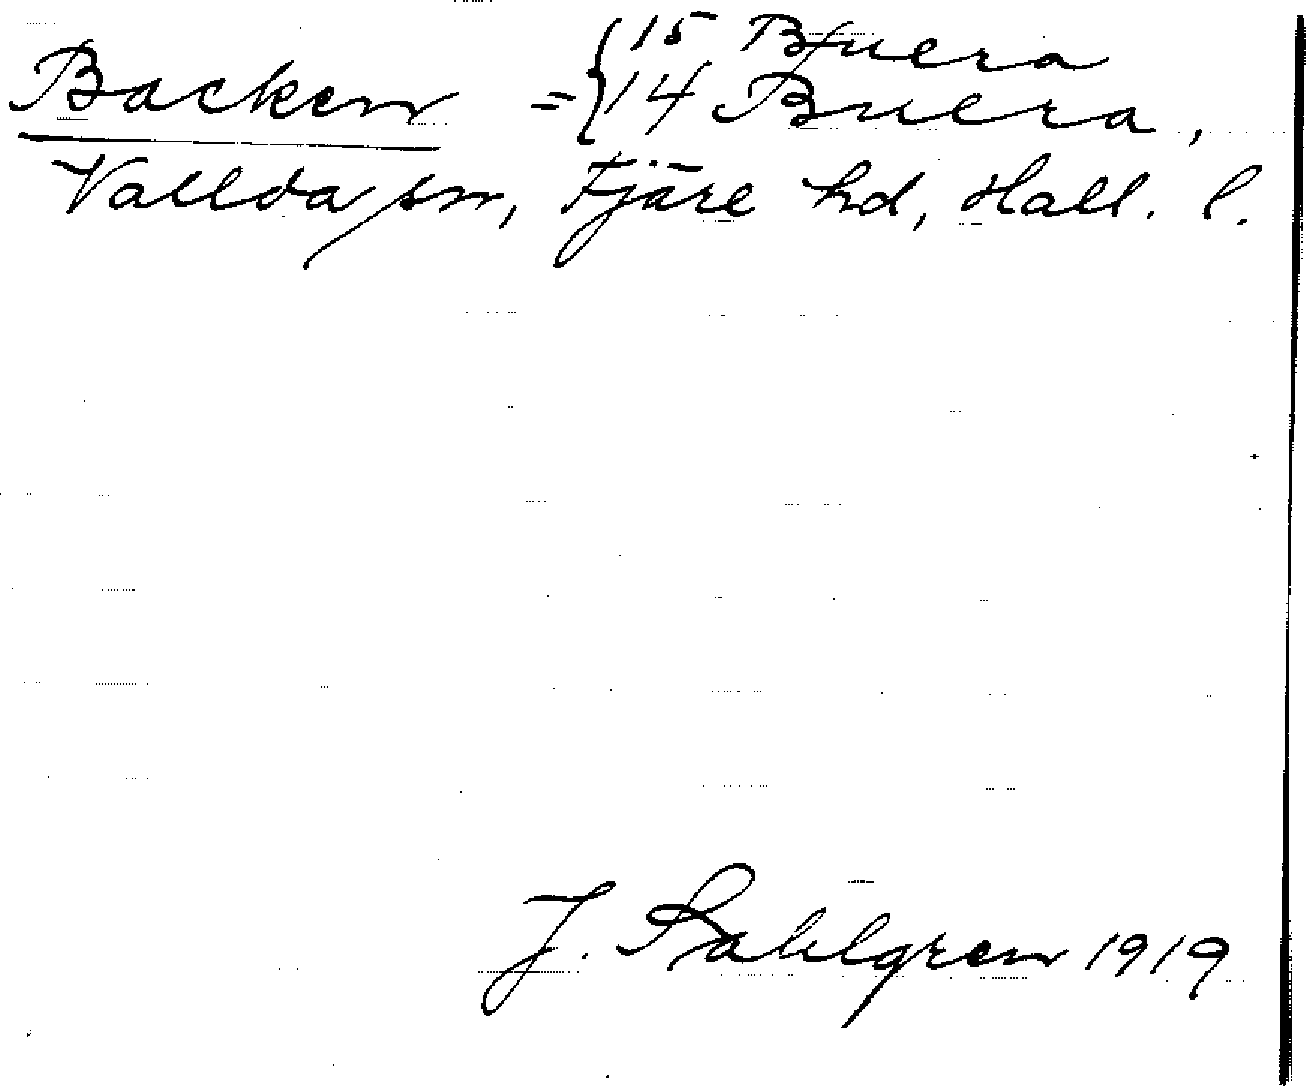 Backen = { 15 Buera
14 Buera,
Vallda sn, Fjäre hd, Hall. l.
J. Sahlgren 1919